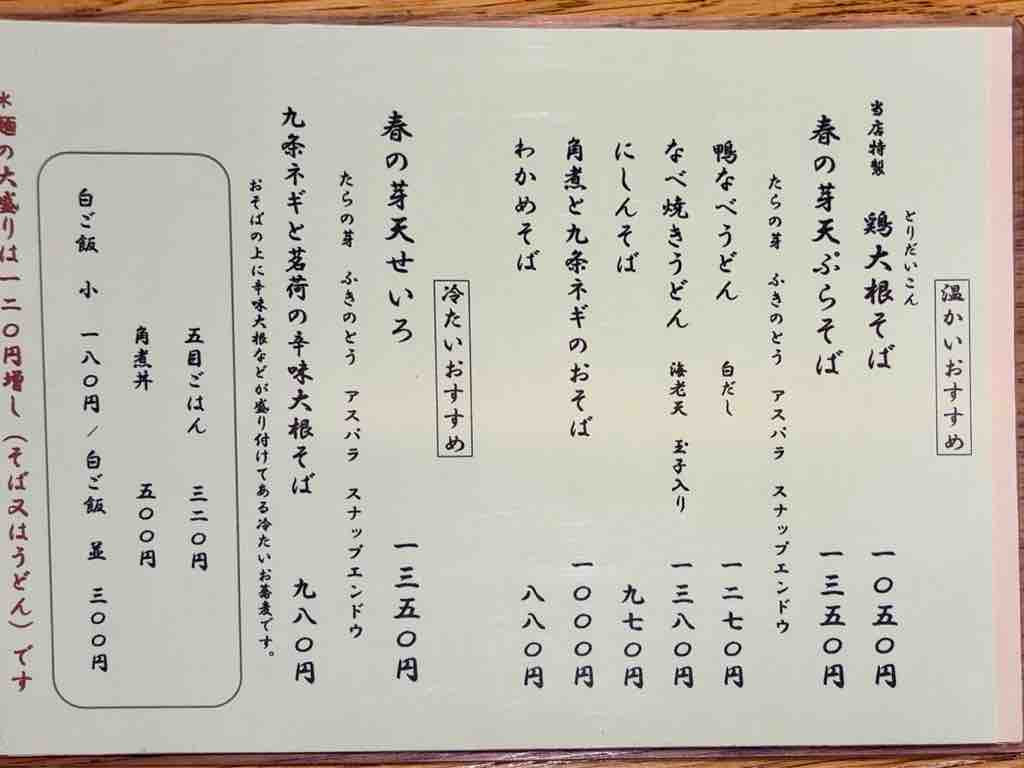 温かいおすすめ
とりだいこん
当店特製 鶏大根そば 一〇五〇円
春の芽天ぷらそば 一三五〇円
たらの芽 ふきのとう アスパラ スナップエンドウ
鴨なべうどん 白だし 一二七〇円
なべ焼きうどん 海老天 玉子入り 一三八〇円
にしんそば 九七〇円
角煮と九条ネギのおそば 一〇〇〇円
わかめそば 八八〇円
冷たいおすすめ
春の芽天せいろ 一三五〇円
たらの芽 ふきのとう アスパラ スナップエンドウ
九条ネギと茗荷の辛味大根そば 九八〇円
おそばの上に辛味大根などが盛り付けてある冷たいお蕎麦です。
五目ごはん 三二〇円
角煮丼 五〇〇円
白ご飯 小 一八〇円/白ご飯 並 三〇〇円
*麺の大盛りは一二〇円増し(そば又はうどん)です